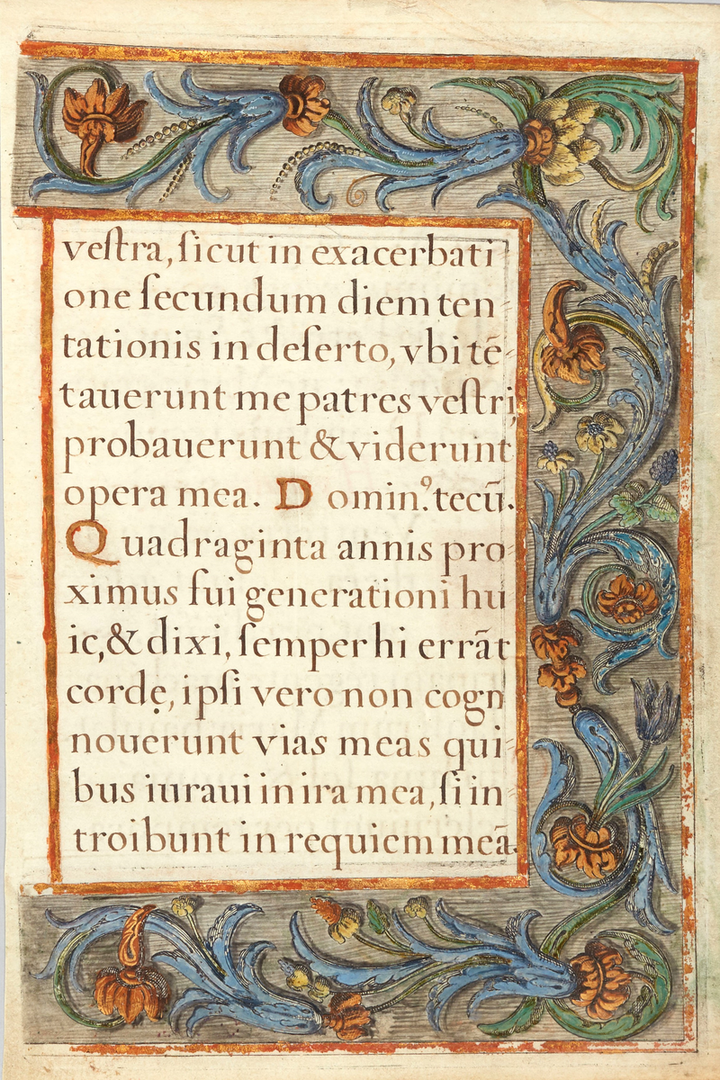 veſtra, ſicut in exacerbati
one ſecundum diem ten-
tationis in deſerto, vbi tē-
tauerunt me patres veſtri,
probauerunt & viderunt
opera mea. Dominꝰ. tecū.
Quadraginta annis pro-
ximus fui generationi hu
ic, & dixi, ſemper hi errāt
cordę, ipſi vero non cogn
nouerunt vias meas qui-
bus iuraui in ira mea, ſi in
troibunt in requiem meā.